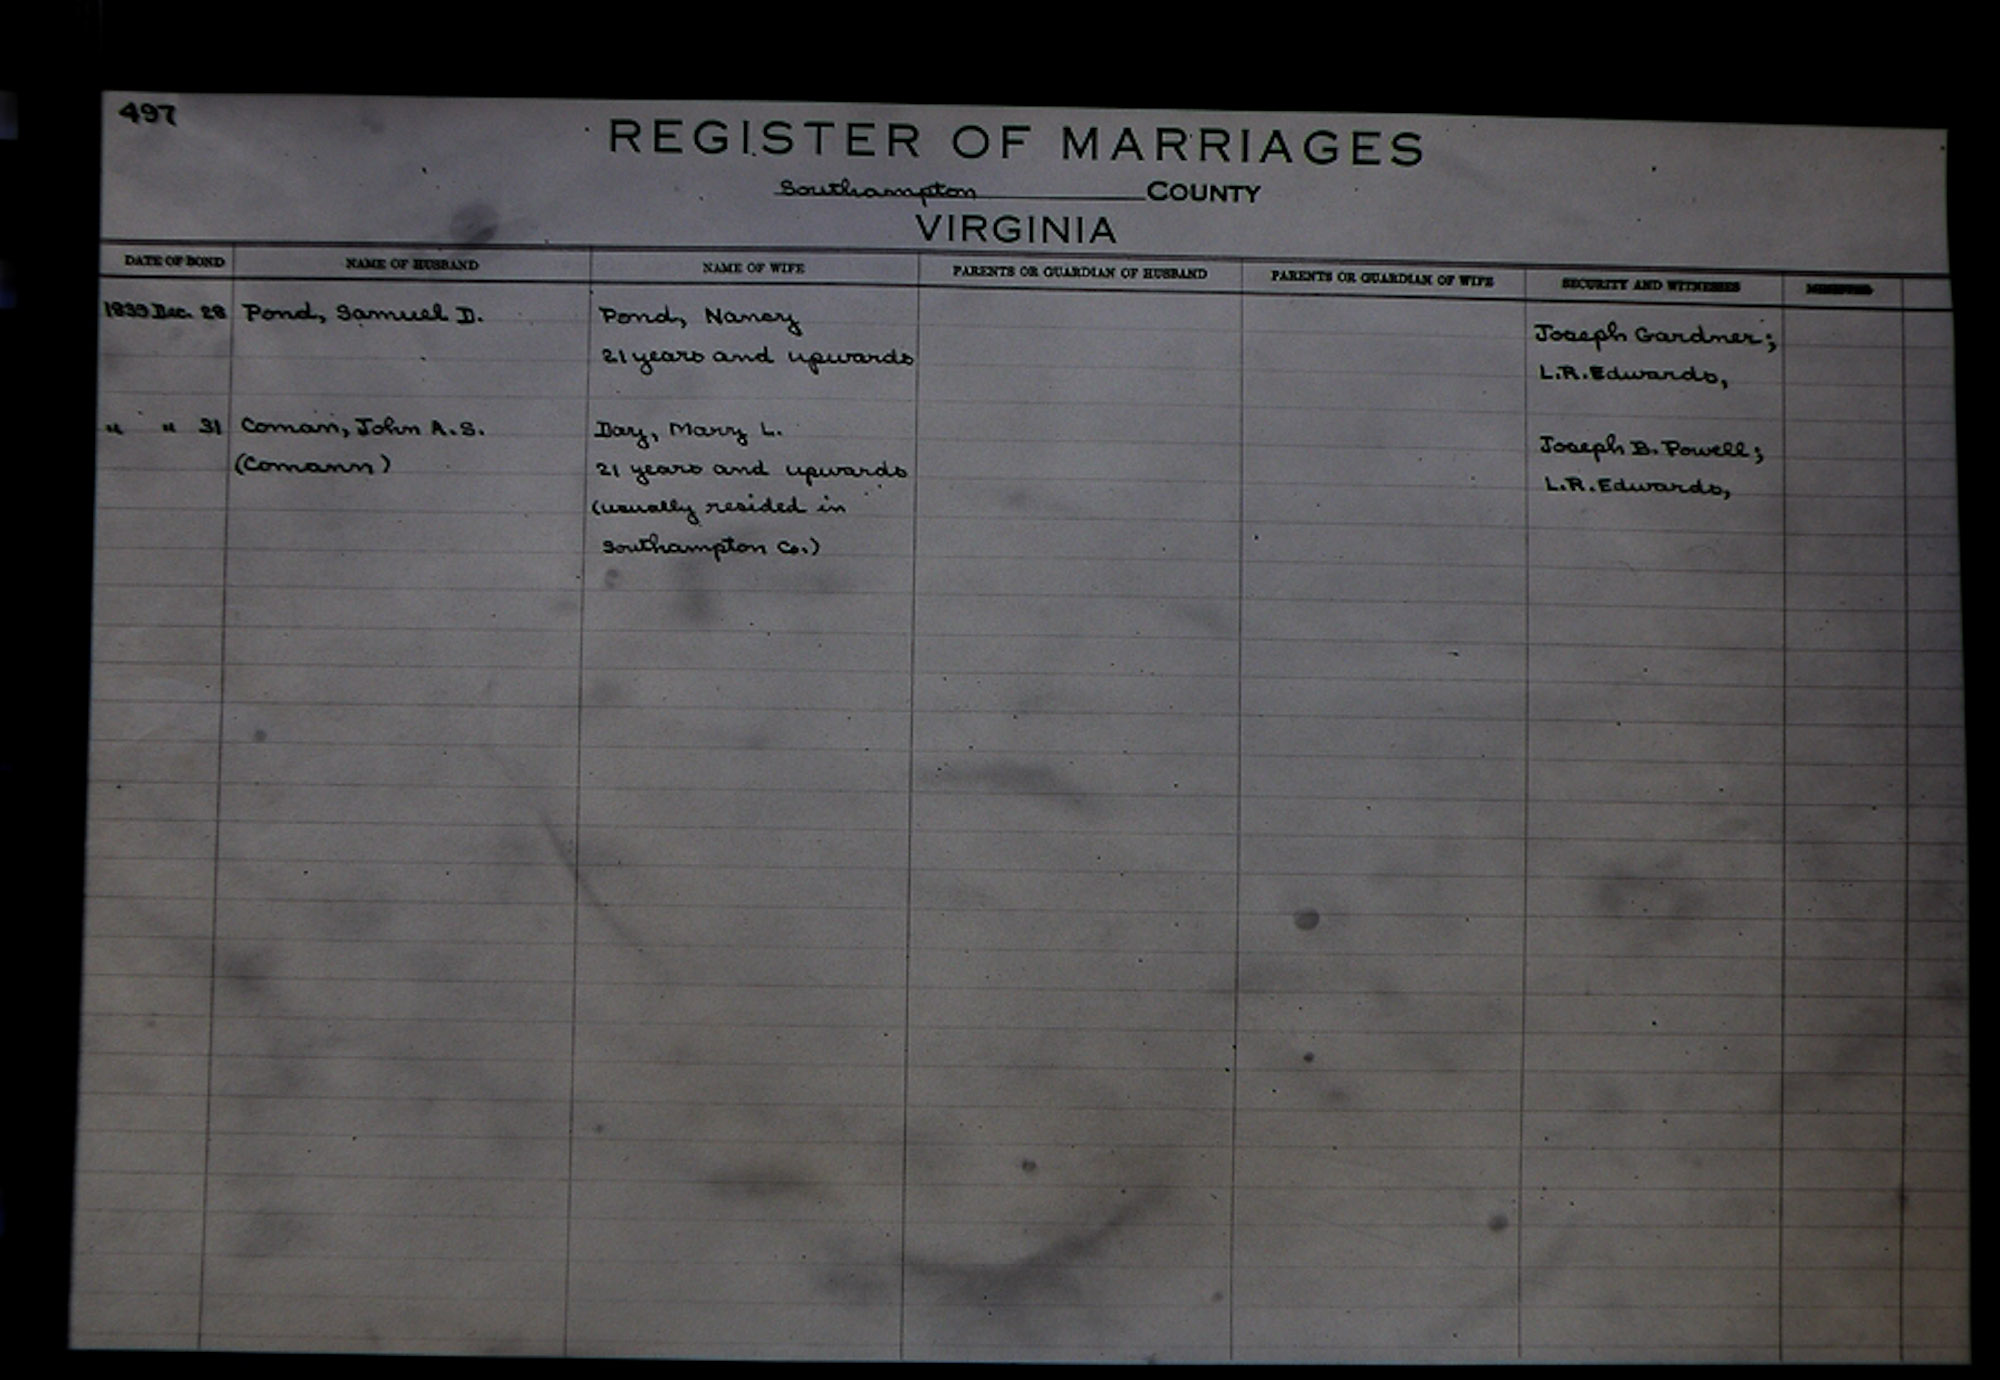 497
REGISTER OF MARRIAGES
Southampton COUNTY
VIRGINIA
DATE OF BOND NAME OF HUSBAND NAME OF WIFE PARENTS OR GUARDIAN OF HUSBAND PARENTS OR GUARDIAN OF WIFE SECURITY AND WITNESSES
1839 Dec. 28 Pond, Samuel D. Pond, Nancy Joseph Gardner;
21 years and upwards L.R. Edwards,
" " 31 Coman, John A.S. Day, Mary L. Joseph B. Powell;
(Comann) 21 years and upwards L.R. Edwards,
(usually resided in
Southampton Co.)